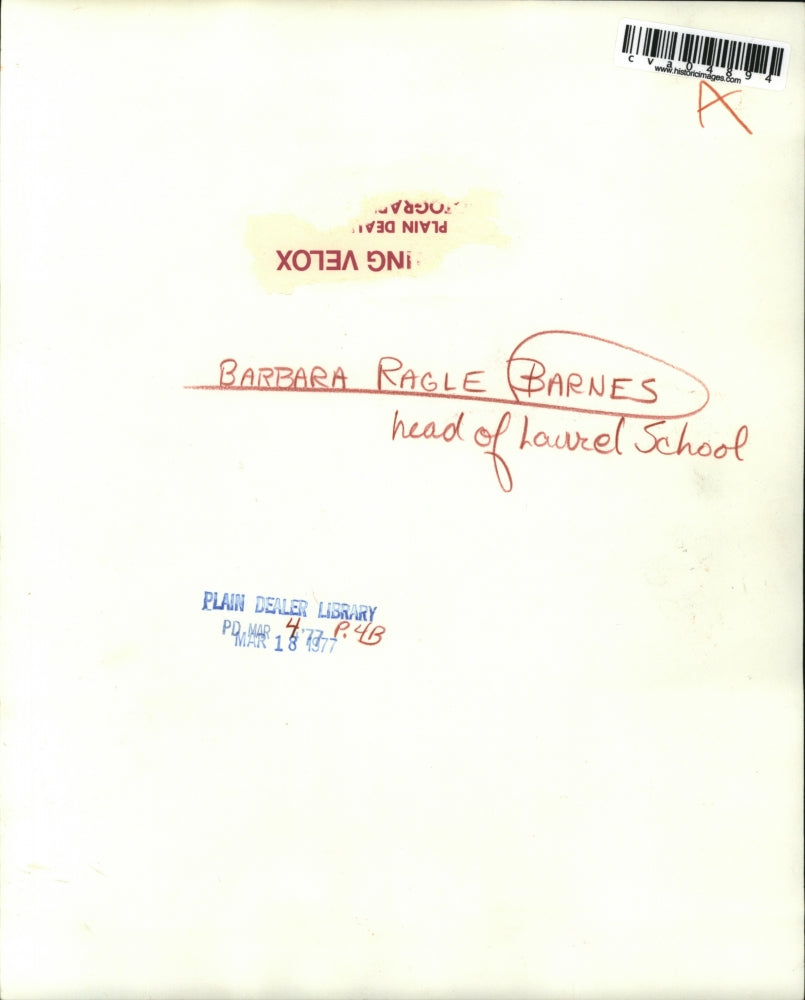 cva04894
www.historicimages.com
A
PLAIN DEAL
ING VELOX
BARBARA RAGLE BARNES
head of Laurel School
PLAIN DEALER LIBRARY
PD MAR 4 '77 P. 4B
MAR 18 1977